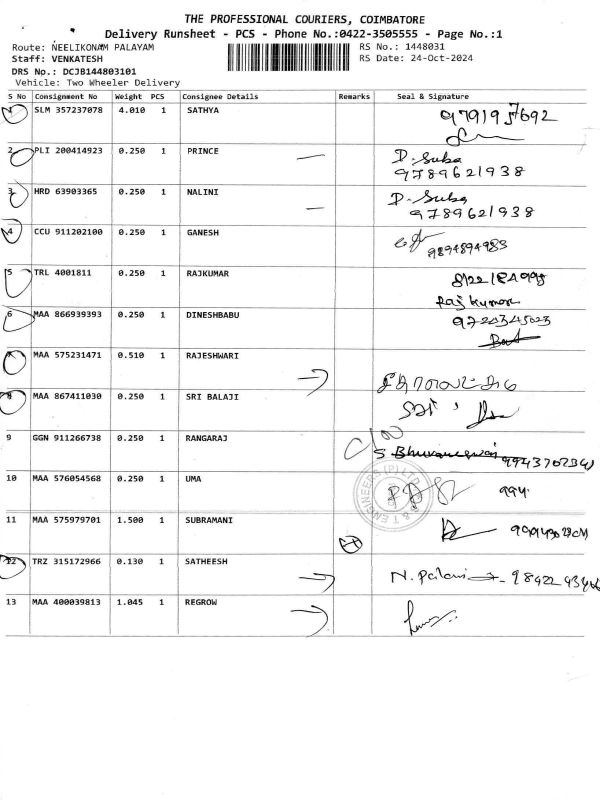 THE PROFESSIONAL COURIERS, COIMBATORE
Delivery Runsheet - PCS - Phone No.:0422-3505555 - Page No.:1
Route: NEELIKONAM PALAYAM RS No.: 1448031
Staff: VENKATESH RS Date: 24-Oct-2024
DRS No.: DCJB144803101
Vehicle: Two Wheeler Delivery
S No Consignment No Weight PCS Consignee Details Remarks Seal & Signature
1 SLM 357237078 4.010 1 SATHYA 9791957692
2 PLI 200414923 0.250 1 PRINCE D. Suba
9789621938
3 HRD 63903365 0.250 1 NALINI D. Suba
9789621938
4 CCU 911202100 0.250 1 GANESH 9894894983
5 TRL 4001811 0.250 1 RAJKUMAR
Rajkumar
6 MAA 866939393 0.250 1 DINESHBABU
7 MAA 575231471 0.510 1 RAJESHWARI
8 MAA 867411030 0.250 1 SRI BALAJI
9 GGN 911266738 0.250 1 RANGARAJ S. Bhuvaneswari
10 MAA 576054568 0.250 1 UMA 994
11 MAA 575979701 1.500 1 SUBRAMANI
12 TRZ 315172966 0.130 1 SATHEESH N. Palani
13 MAA 400039813 1.045 1 REGROW